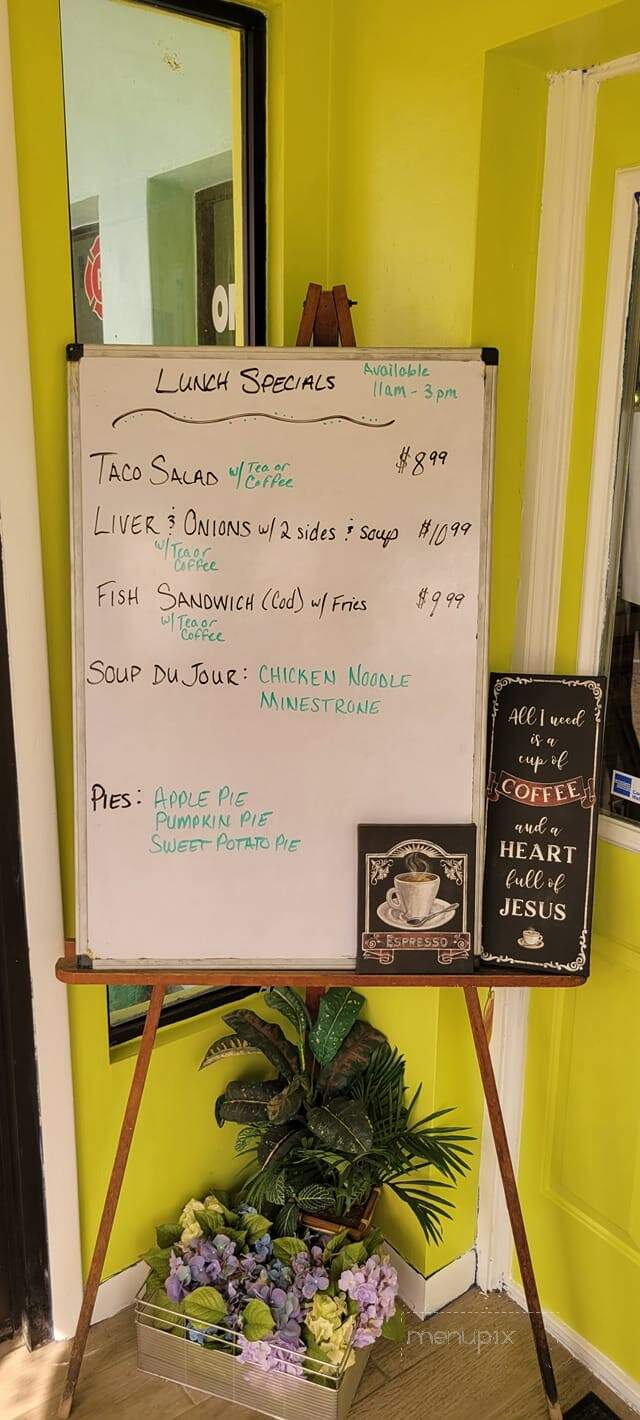 LUNCH SPECIALS
Available
11am - 3pm
TACO SALAD w/ Tea or
Coffee
$8.99
LIVER & ONIONS w/ 2 sides & soup $10.99
w/ Tea or
Coffee
FISH SANDWICH (Cod) w/ Fries $9.99
w/ Tea or
Coffee
SOUP DU JOUR: CHICKEN NOODLE
MINESTRONE
PIES: APPLE PIE
PUMPKIN PIE
SWEET POTATO PIE
ESPRESSO
All I need
is a
cup of
COFFEE
and a
HEART
full of
JESUS
menupix